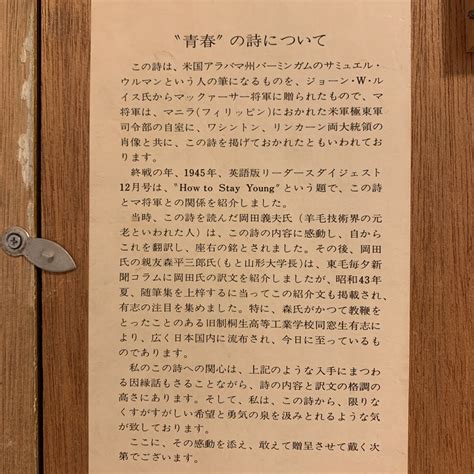 “青春”の詩について
この詩は、米国アラバマ州バーミンガムのサミュエル・
ウルマンという人の筆になるものを、ジョーン・W・ル
イス氏からマックァーサー将軍に贈られたもので、マ
将軍は、マニラ(フィリッピン)におかれた米軍極東軍
司令部の自室に、ワシントン、リンカーン両大統領の
肖像と共に、この詩を掲げておかれたともいわれてお
ります。
終戦の年、1945年、英語版リーダースダイジェスト
12月号は、“How to Stay Young”という題で、この詩
とマ将軍との関係を紹介しました。
当時、この詩を読んだ岡田義夫氏(羊毛技術界の元
老といわれた人)は、この詩の内容に感動し、自から
これを翻訳し、座右の銘とされました。その後、岡田
氏の親友森平三郎氏(もと山形大学長)は、東毛毎夕新
聞コラムに岡田氏の訳文を紹介しましたが、昭和43年
夏、随筆集を上梓するに当ってこの紹介文も掲載され、
有志の注目を集めました。特に、森氏がかつて教鞭を
とったことのある旧制桐生高等工業学校同窓生有志に
より、広く日本国内に流布され、今日に至っているもの
であります。
私のこの詩への関心は、上記のような入手にまつわ
る因縁話もさることながら、詩の内容と訳文の格調の
高さにあります。そして、私は、この詩から、限りな
くすがすがしい希望と勇気の泉を汲みとれるような気
が致しております。
ここに、その感動を添え、敢えて贈呈させて戴く次
第でございます。